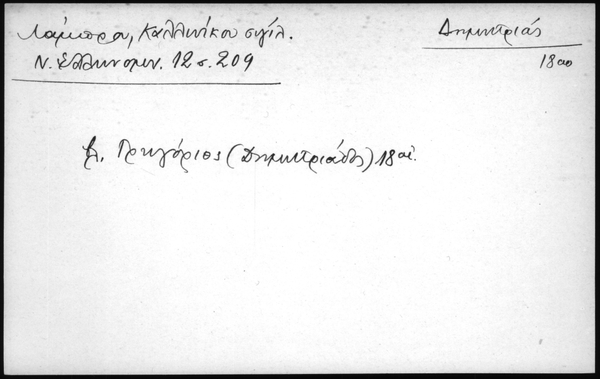 Λάμπρου, Καλλινίκου σιγίλ.
Ν. Ἑλληνομν. 12 σ. 209
Δημητριάς
18ου
βλ. Γρηγόριος (Δημητριάδος) 18 αἰ.